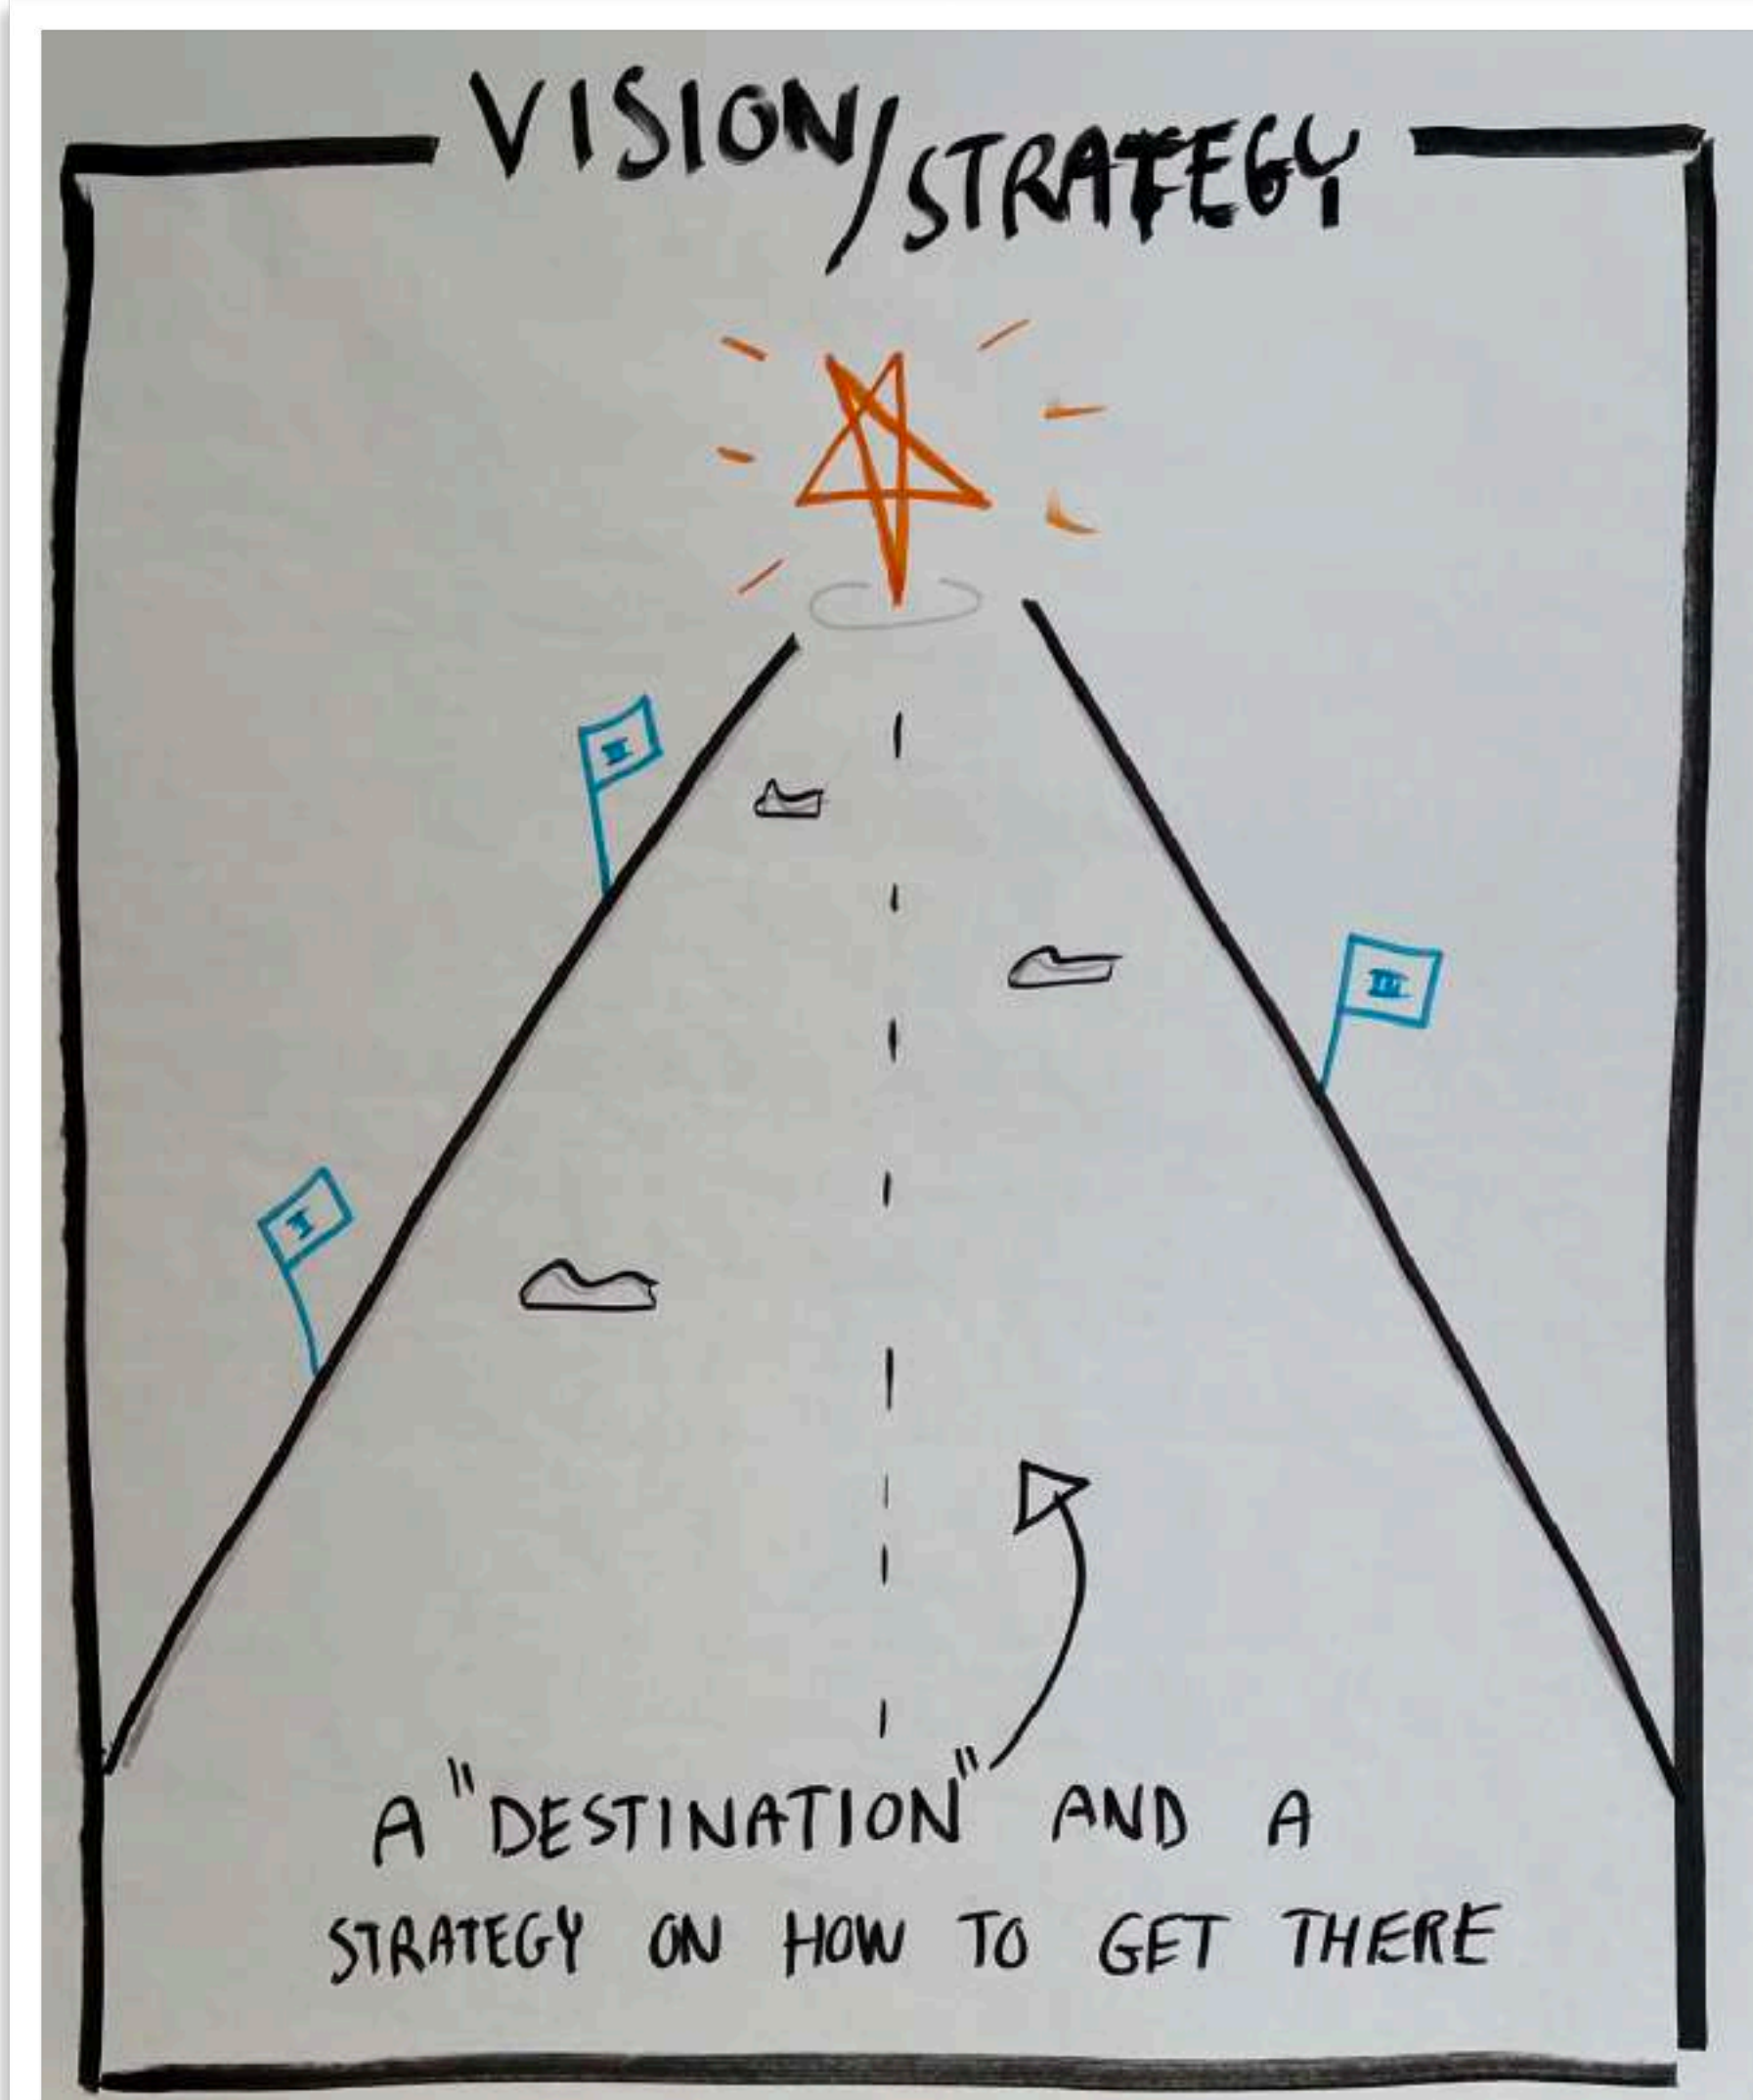 VISION/STRATEGY
II
III
I
A "DESTINATION" AND A
STRATEGY ON HOW TO GET THERE